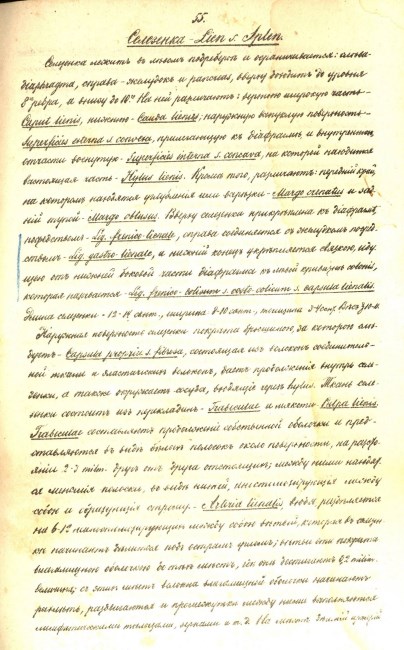 55.
Селезенка - Lien s. Splen.
Селезенка лежитъ въ лѣвомъ подреберьи и ограничивается: слѣва
діафрагма, справа - желудокъ и pancreas, вверху доходитъ до уровня
8го ребра, а внизу до 10го На ней различаютъ: верхнюю широкую часть -
Caput lienis, нижнюю - Cauda lienis; наружную выпуклую поверхность -
Superficies externa s. convexa, прилегающую къ діафрагмѣ, и внутреннюю
отчасти вогнутую - Superficies interna s. concava, на которой находится
часть - Hylus lienis. Кромѣ того, различаютъ: передній край,
на которомъ находятся углубленія или вырѣзки - Margo crenatus и зад-
ній тупой - Margo obtusus. Вверху селезенка прикрѣплена къ діафрагмѣ
посредствомъ - Lig. frenico-lienale, справа соединяется съ желудкомъ посред-
ствомъ - Lig. gastro-lienale, и нижній конецъ укрѣпляется связкою, иду-
щею отъ нижней боковой части діафрагмы къ лѣвой кривизнѣ colonis,
которая называется - Lig. frenico-colicum s. costo-colicum s.
Длина селезенки - 12-14 сант., ширина 8-10 сант., толщина 3-4 сант.
Наружная поверхность селезенки покрыта брюшиной, за которою слѣ-
дуетъ - Capsula propria s. fibrosa, состоящая изъ волоконъ соединитель-
ной ткани и эластическихъ волоконъ, даетъ продолженія внутрь селе-
зенки, а также окружаетъ сосуды, входящіе черезъ hylus. Ткань селе-
зенки состоитъ изъ перекладинъ - Trabeculae и мякоти Pulpa lienis.
Trabeculae составляютъ продолженіе собственной оболочки и пред-
ставляются въ видѣ бѣлыхъ полосокъ около поверхности, на разсто-
яніи 2-3 mlm. другъ отъ друга отстоящихъ; между ними находят-
ся меньшія полоски, въ видѣ нитей, анастомозирующія между
собою и образующія строму. - Arteria lienalis, входя, раздѣляется
на 6-12 анастомозирующихъ между собою вѣтвей, которыя въ свою
начинаютъ дѣлиться подъ острымъ угломъ; вѣтви эти покрыты
влагалищною оболочкою до тѣхъ мѣстъ, гдѣ они достигаютъ 0,2 mlm.
величины; съ этихъ мѣстъ волокна влагалищной оболочки начинаютъ
рѣдѣть, разбѣгаются и промежутки между ними заполняются
лимфатическими тѣльцами, зернами и т. д. На мѣстѣ